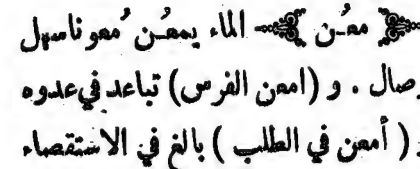 معن الماء يمعن معونا سهل
وصال . و (امعن الفرس) تباعد في عدوه
و ( أمعن في الطلب ) بالغ في الاستقصاء